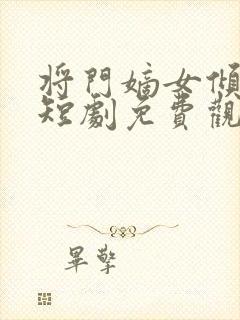 將門嫡女傾
短劇免費觀
畢擎